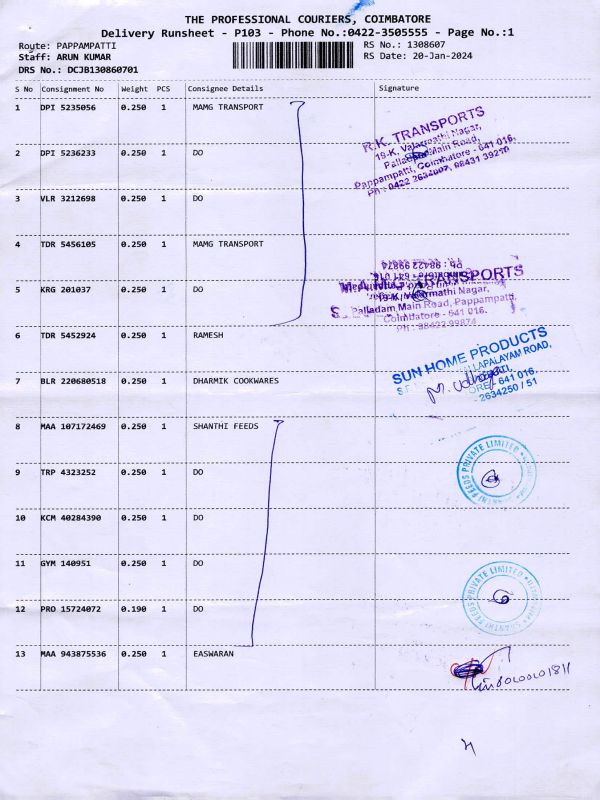 THE PROFESSIONAL COURIERS, COIMBATORE
Delivery Runsheet - P103 - Phone No.:0422-3505555 - Page No.:1
Route: PAPPAMPATTI RS No.: 1308607
Staff: ARUN KUMAR RS Date: 20-Jan-2024
DRS No.: DCJB130860701
S No Consignment No Weight PCS Consignee Details Signature
1 DPI 5235056 0.250 1 MAMG TRANSPORT
R.K. TRANSPORTS
19-K, Valarmathi Nagar,
Palladam Main Road,
Pappampatti, Coimbatore - 641 016.
2 DPI 5236233 0.250 1 DO
3 VLR 3212698 0.250 1 DO
4 TDR 5456105 0.250 1 MAMG TRANSPORT
5 KRG 201037 0.250 1 DO
TRANSPORTS
Valarmathi Nagar,
Palladam Main Road, Pappampatti,
Coimbatore - 641 016.
Ph : 98422 99874
6 TDR 5452924 0.250 1 RAMESH
SUN HOME PRODUCTS
LAPALAYAM ROAD,
641 016.
2634250 / 51
7 BLR 220680518 0.250 1 DHARMIK COOKWARES
8 MAA 107172469 0.250 1 SHANTHI FEEDS
9 TRP 4323252 0.250 1 DO
SHANTHI FEEDS PRIVATE LIMITED
10 KCM 40284390 0.250 1 DO
11 GYM 140951 0.250 1 DO
SHANTHI FEEDS PRIVATE LIMITED
12 PRO 15724072 0.190 1 DO
13 MAA 943875536 0.250 1 EASWARAN